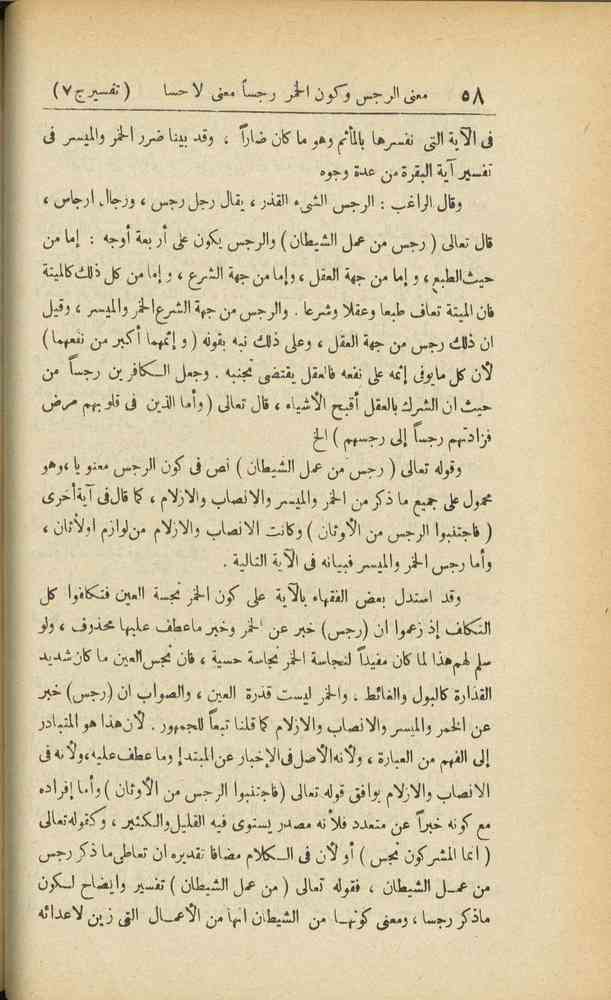 ٥٨ معنى الرجس وكون الخمر رجساً معنى لا حسا ( تفسير ج ٧ )
فى الآية التى نفسرها بالمأثم وهو ما كان ضاراً ، وقد بينا ضرر الخمر والميسر فى
تفسير آية البقرة من عدة وجوه
وقال الراغب : الرجس الشىء القذر ، يقال رجل رجس ، ورجال ارجاس ،
قال تعالى ( رجس من عمل الشيطان ) والرجس يكون على أربعة أوجه : إما من
حيث الطبع ، و إما من جهة العقل ، وإما من جهة الشرع ، و إما من كل ذلك كالميتة
فان الميتة تعاف طبعا وعقلا وشرعا . والرجس من جهة الشرع الخمر والميسر ، وقيل
ان ذلك رجس من جهة العقل ، وعلى ذلك نبه بقوله ( و إثمهما أكبر من نفعهما )
لأن كل مايوفى إثمه على نفعه فالعقل يقتضى تجنبه . وجعل الكافرين رجساً من
حيث ان الشرك بالعقل أقبح الأشياء ، قال تعالى ( وأما الذين فى قلوبهم مرض
فزادتهم رجساً إلى رجسهم ) الخ
وقوله تعالى ( رجس من عمل الشيطان ) نص فى كون الرجس معنويا ،وهو
محمول على جميع ما ذكر من الخمر والميسر والانصاب والازلام ، كما قال فى آية أخرى
( فاجتنبوا الرجس من الأوثان ) وكانت الانصاب والازلام من لوازم اولأثان ،
وأما رجس الخمر والميسر فبيانه فى الآية التالية .
وقد استدل بعض الفقهاء بالآية على كون الخمر نجسة العين فتكافوا كل
التكاف إذ زعموا ان (رجس) خبر عن الخمر وخبر ماعطف عليها محذوف ، ولو
سلم لهم هذا لما كان مفيداً لنجاسة الخمر نجاسة حسية ، فان نجس العين ما كان شديد
القذارة كالبول والغائط . والخمر ليست قذرة العين ، والصواب ان (رجس) خبر
عن الخمر والميسر والانصاب والازلام كما قلنا تبعاً للجمهور . لأن هذا هو المتبادر
إلى الفهم من العبارة ، ولأنه الأصل فى الإخبار عن المبتدإ وما عطف عليه ،ولأنه فى
الانصاب والازلام يوافق قوله تعالى (فاجتنبوا الرجس من الأوثان ) وأما إفراده
مع كونه خبراً عن متعدد فلأنه مصدر يستوى فيه القليل والكثير ، وكقوله تعالى
( انما المشركون نجس ) أو لأن فى الكلام مضافا تقديره ان تعاطى ما ذكر رجس
من عمل الشيطان ، فقوله تعالى ( من عمل الشيطان ) تفسير وايضاح لكون
ماذكر رجسا ، ومعنى كونها من الشيطان انها من الأعمال التى زين لاعدائه